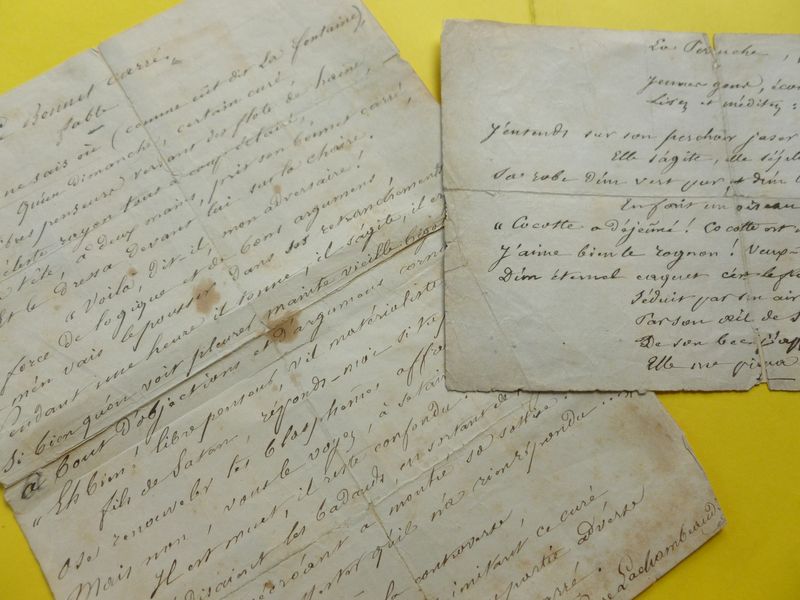 Bonnet carré.
fable
ne sais où (comme eût dit La Fontaine)
Qu'un Dimanche, certain curé,
libres penseurs versant des flots de haine,
céleste rayon tous à coup éclairé,
tête, à deux mains, prit son bonnet carré,
Et le dressa devant lui sur la chaire.
"Voilà, dit-il, mon adversaire!
force de logique et de bons arguments,
m'en vais le pousser dans ses retranchements
Pendant une heure il tonne, il s'agite, il
Si bien qu'on voit pleurer mainte vieille
à bout d'objections et d'arguments
"Eh bien! libre penseur, vil matérialiste
fils de Satan, réponds-moi si tu
Ose renouveler tes blasphèmes
Mais non, vous le voyez, à
Il est muet, il reste confondu!
disaient les badauds, en sortant
mécréant a montré sa sottise
qu'il n'a rien répondu
la controverse,
imitant ce curé
partie adverse
carré.
Lachambeaudie
La Perruche,
Jeunes gens,
Lisez et méditez:
J'entends sur son perchoir jaser
Elle s'agite, elle
Sa robe d'un vert pur, et d'un
En font un oiseau
"Cocotte a déjeuné! Cocotte est
J'aime bien le rognon! Veux-
D'un éternel caquet c'est le
Séduit par son air
Par son œil de
De son bec
Elle me piqua